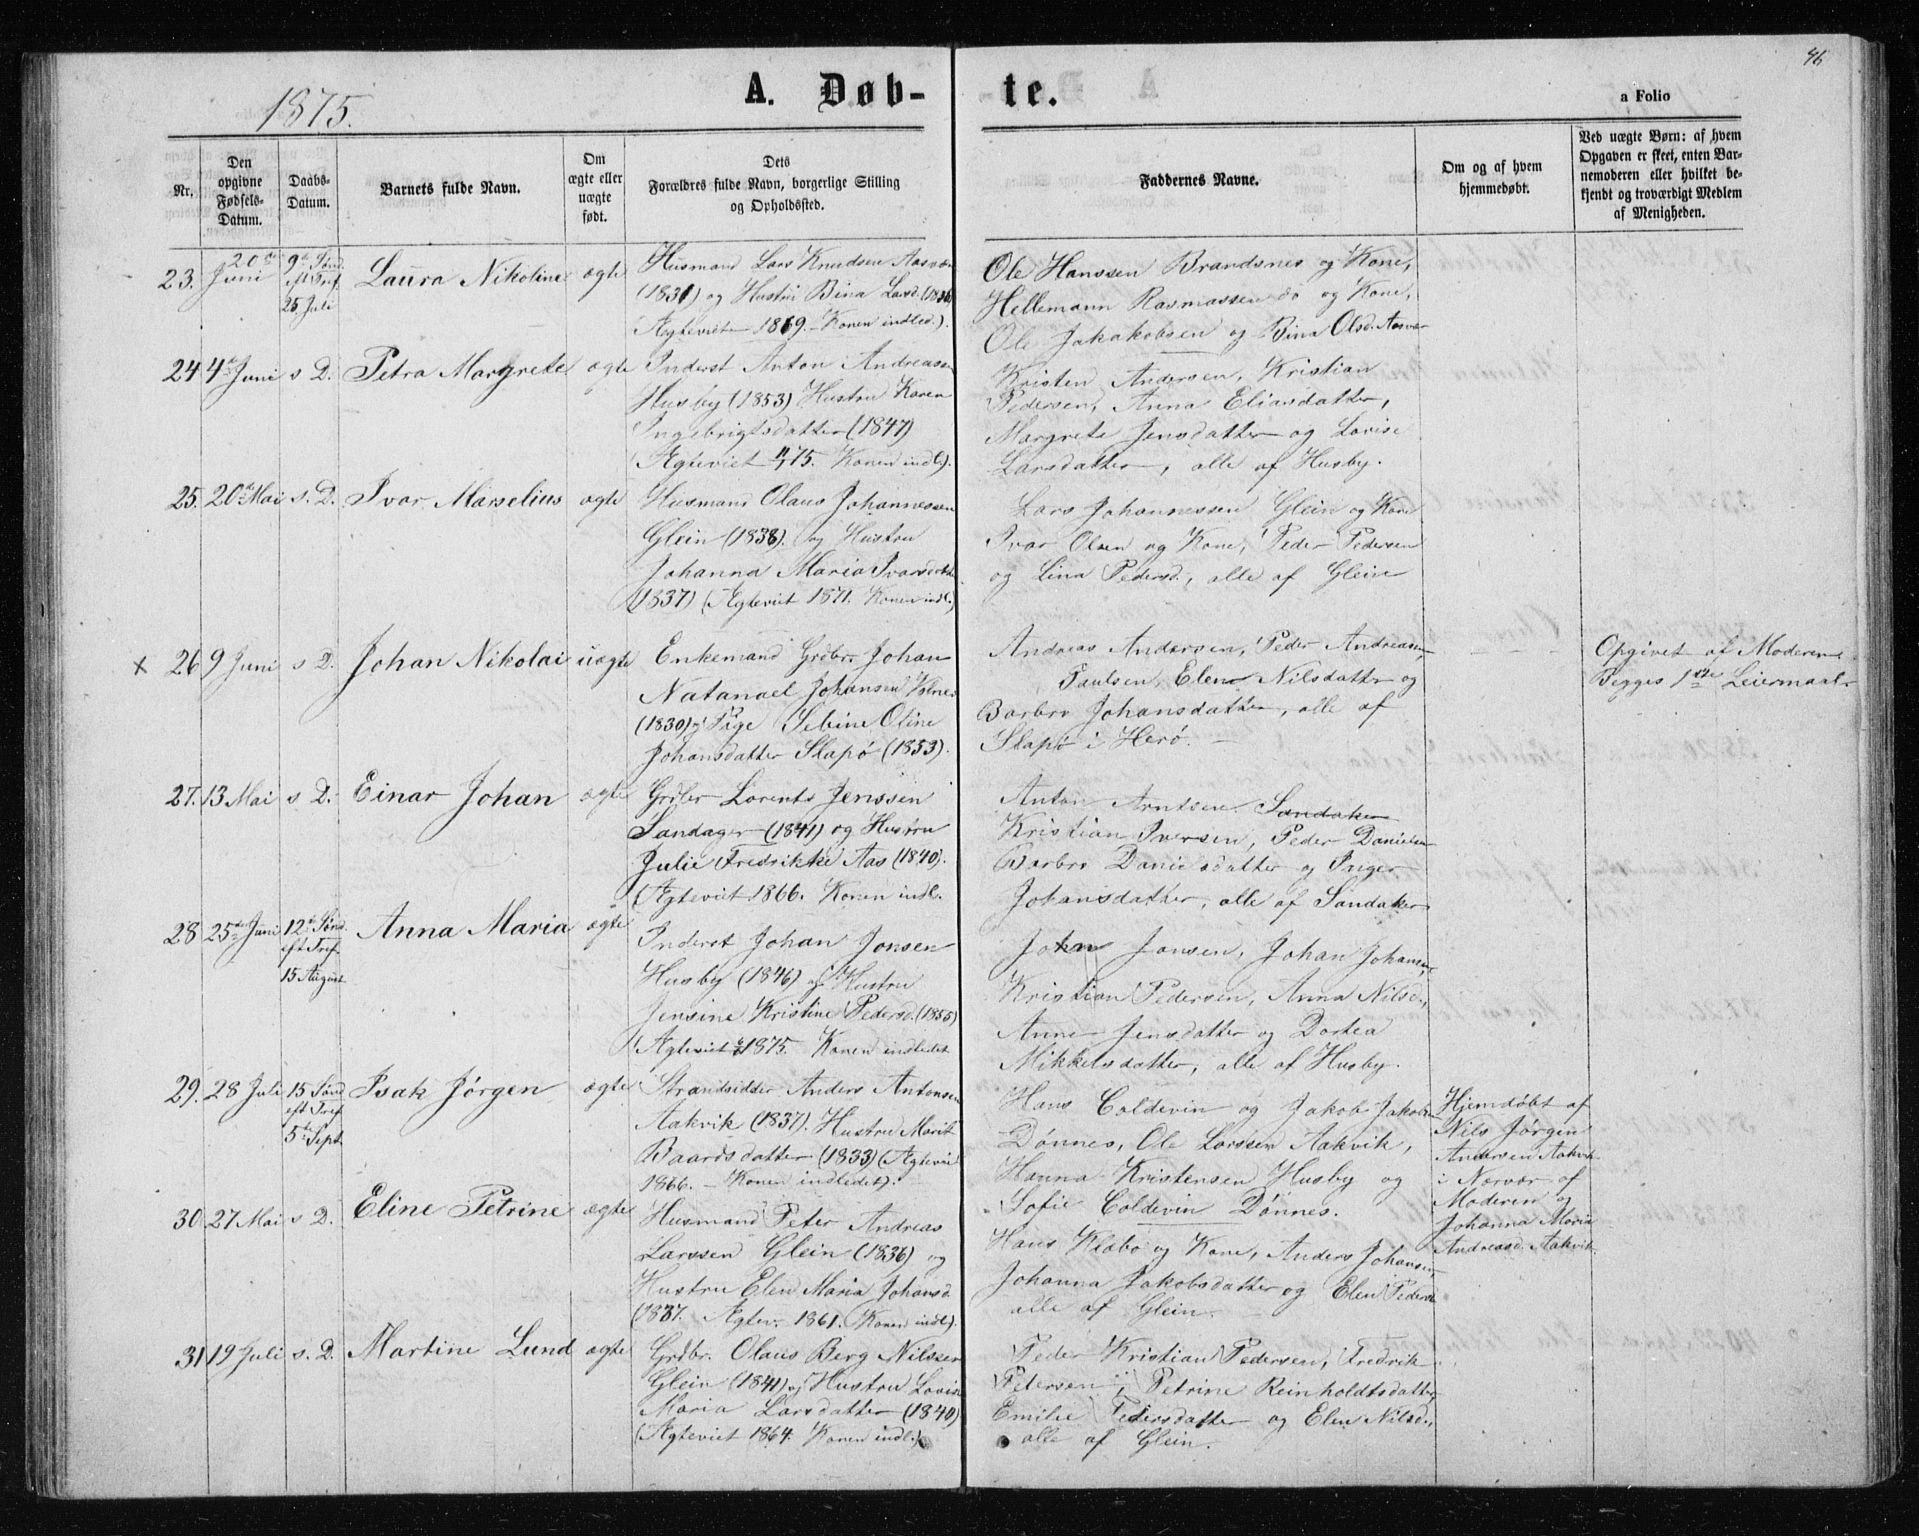 46
1875.
A. Døb-
te.
a Folio
Nr.
Den
opgivne
Fødsels-
Datum.
Daabs-
Datum.
Barnets fulde Navn.
Om
ægte eller
uægte
født.
Dets
Forældres fulde Navn, borgerlige Stilling
og Opholdssted.
Faddernes Navne.
Om og af hvem
hjemmedøbt.
Ved uægte Børn: af hvem
Opgaven er skeet, enten Bar-
nemoderen eller hvilket be-
kjendt og troværdigt Medlem
af Menigheden.
23.
20de
Juni
9de Sønd.
eft Tref.
25 Juli
Laura Nikoline
ægte
Husmand Lars Knudsen Aasvær
(1831) og Hustru Bina Larsd. (1836)
Ægteviet 1869. Konen indled.).
Ole Hanssen Brandsnes og Kone,
Hellemann Rasmassen do og Kone,
Ole Jakakobsen og Bina Olsd. Aasvær
24
4de Juni
s D.
Petra Margrete
ægte
Inderst Anton Andreassen
Husby (1853) Hustru Karen
Ingebrigtsdatter (1847)
(Ægteviet 75. Konen indl.).
Kristen Andersen, Kristian
Pedersen, Anna Eliasdatter,
Margrete Jensdatter og Lovise
Larsdatter, alle af Husby.
25.
20de Mai
s. D.
Ivar Marselius
ægte
Husmand Olaus Johannessen
Glein (1838). og Hustru
Johanna Maria Ivarsdatter
1837) (Ægteviet 1871. Konen indl.)
Lars Johannessen Glein og Kone
Ivar Olsen og Kone, Peder Pedersen
og Lina Pedersd., alle af Glein
x
26
9 Juni
s D.
Johan Nikolai
uægte
Enkemand Grdbr. Johan
Natanael Johansen
(1830) og Pige Sebine Oline
Johansdatter Slapø (1853).
Andreas Andersen, Peder Andreassen,
Paulsen, Elen Nilsdatter og
Barbro Johansdatter, alle af
Slapø i Herø. —
— — —
Opgivet af Moderen
Begges 1ste Leiermaal
27.
13 Mai
s D.
Einar Johan
ægte
Grdbr Lorents Jenssen
Sandager (1841) og Hustru
Julie Fredrikke Aas (1840).
(Ægteviet 1866. Konen indl.
Anton Arntsen Sandaker
Kristian Iversen, Peder Danielsen
Barbro Danielsdatter og Inger
Johansdatter, alle af Sandaker
28
25de Juni
12te Sønd.
eft Tref.
15 August
Anna Maria
ægte
Inderst Johan Jonsen
Husby (1846) og Hustru
Jensine Kristine Pedersd. (1855)
(Ægteviet 1875. Konen indledet
John Jonsen, Johan Johansen,
Kristian Pedersen, Anna Nilsd.,
Anne Jensdatter og Dortea
Mikkelsdatter, alle af Husby.
29.
28 Juli
15 Sønd
eft Tref.
5te Sept.
Isak Jørgen
ægte
Strandsidder Anders Antonsen
Aakvik (1837). Hustru Marit
Baardsdatter (1833) (Ægteviet
1866. — Konen indledet).
Hans Coldevin og Jakob Jakobsen
Dønnes, Ole Larssen Aakvik,
Hanna Kristensen Husby og
Sofie Coldevin Dønnes.
Hjemdøbt af
Nils Jørgen
Andersen Aakvik
i Nærvær af
Moderen og
Johanna Maria
Andreasd. Aakvik
30
27 Mai
s D.
Eline Petrine
ægte
Husmand Peter Andreas
Larssen Glein (1836) og
Hustru Elen Maria Johansd.
(1837. Ægtev. 1861. Konen indl.).
Hans Klæbo og Kone, Anders Johansen,
Johanna Jakobsdatter og Elen Pedersd.
alle af Glein.
31
19 Juli
s. D.
Martine Lund
ægte
Grdbr. Olaus Berg Nilssen
Glein (1841) og Hustru Lovise
Maria Larsdatter (1840)
(Ægteviet 1864. Konen indl.)
Peder Kristian Pedersen, Fredrik
Petersen, Petrine Reinholdtsdatter,
Emilie Pedersdatter og Elen Nilsd.,
alle af Glein.